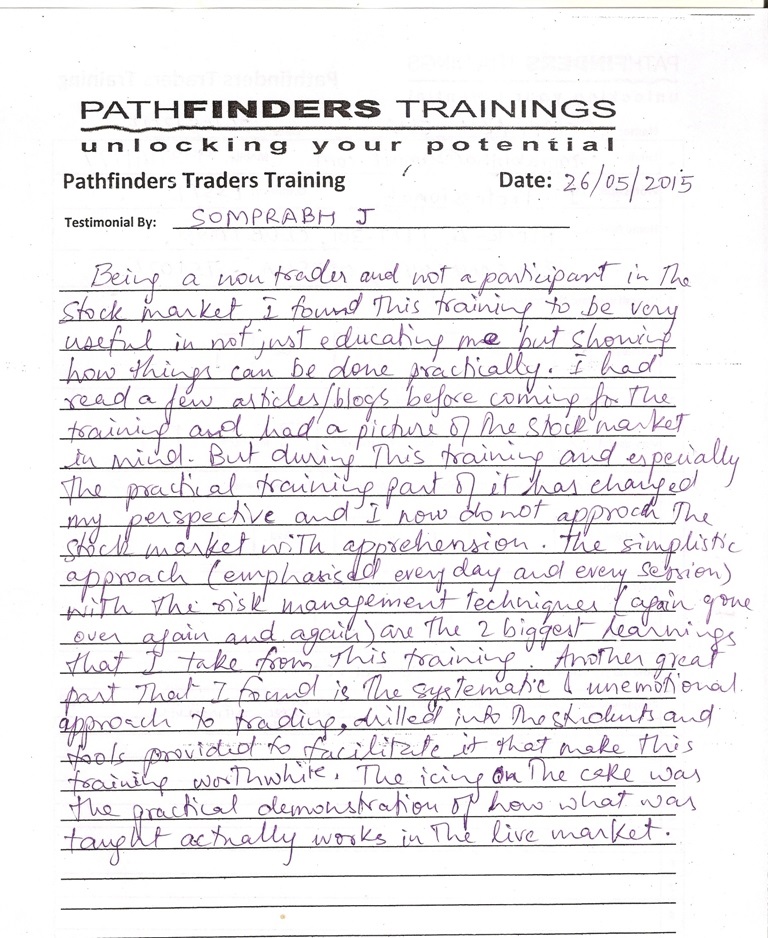 PATHFINDERS TRAININGS
unlocking your potential
Pathfinders Traders Training Date: 26/05/2015
Testimonial By: SOMPRABH J
Being a non trader and not a participant in the
Stock market, I found this training to be very
useful in not just educating me but showing
how things can be done practically. I had
read a few articles/blogs before coming for the
training and had a picture of the stock market
in mind. But during this training and especially
the practical training part of it has changed
my perspective and I now do not approch the
stock market with apprehension. The simplistic
approach (emphasised every day and every session)
with the risk management techniques (again gone
over again and again) are the 2 biggest learnings
that I take from this training. Another great
part that I found is the systematic & unemotional
approach to trading, drilled into the students and
tools provided to facilitate it that make this
training worthwhite. The icing on the cake was
the practical demonstration of how what was
taught actually works in the live market.